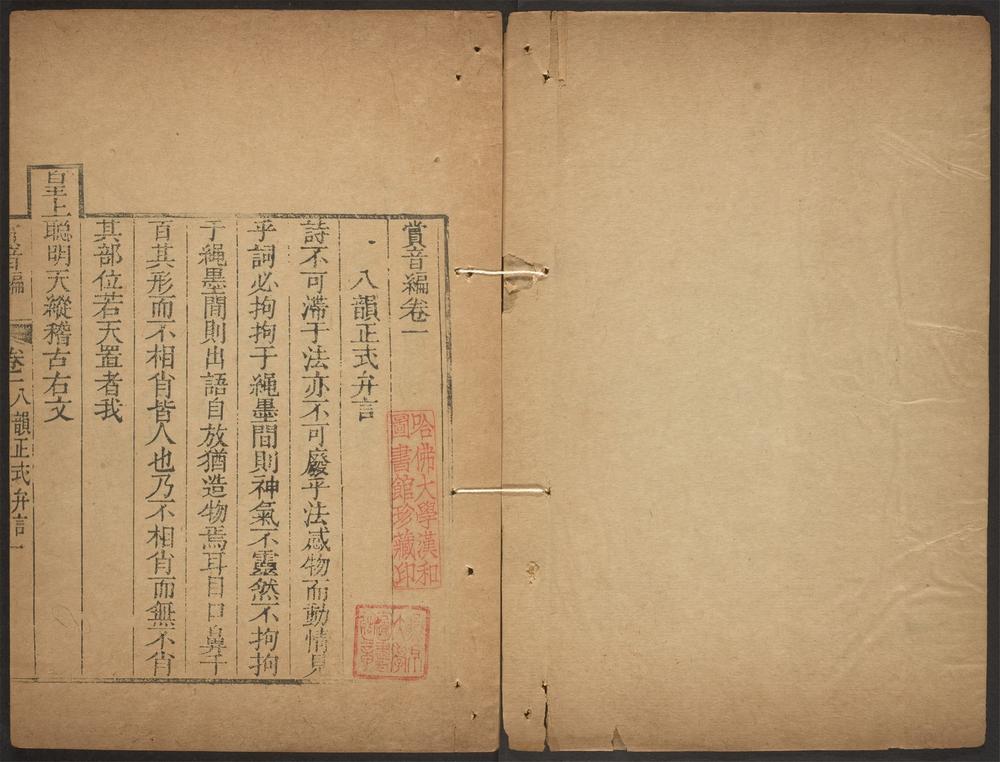 賞音編卷一
八韻正式弁言
詩不可滯于法亦不可廢乎法感物而動情見
乎詞必拘拘于繩墨間則神氣不靈然不拘拘
于繩墨間則出語自放猶造物焉耳目口鼻千
百其形而不相肖皆人也乃不相肖而無不肖
其部位若天置者我
皇上聰明天縱稽古右文
賞音編
卷一八韻正式弁言一
哈佛大學漢和
圖書館珍藏印